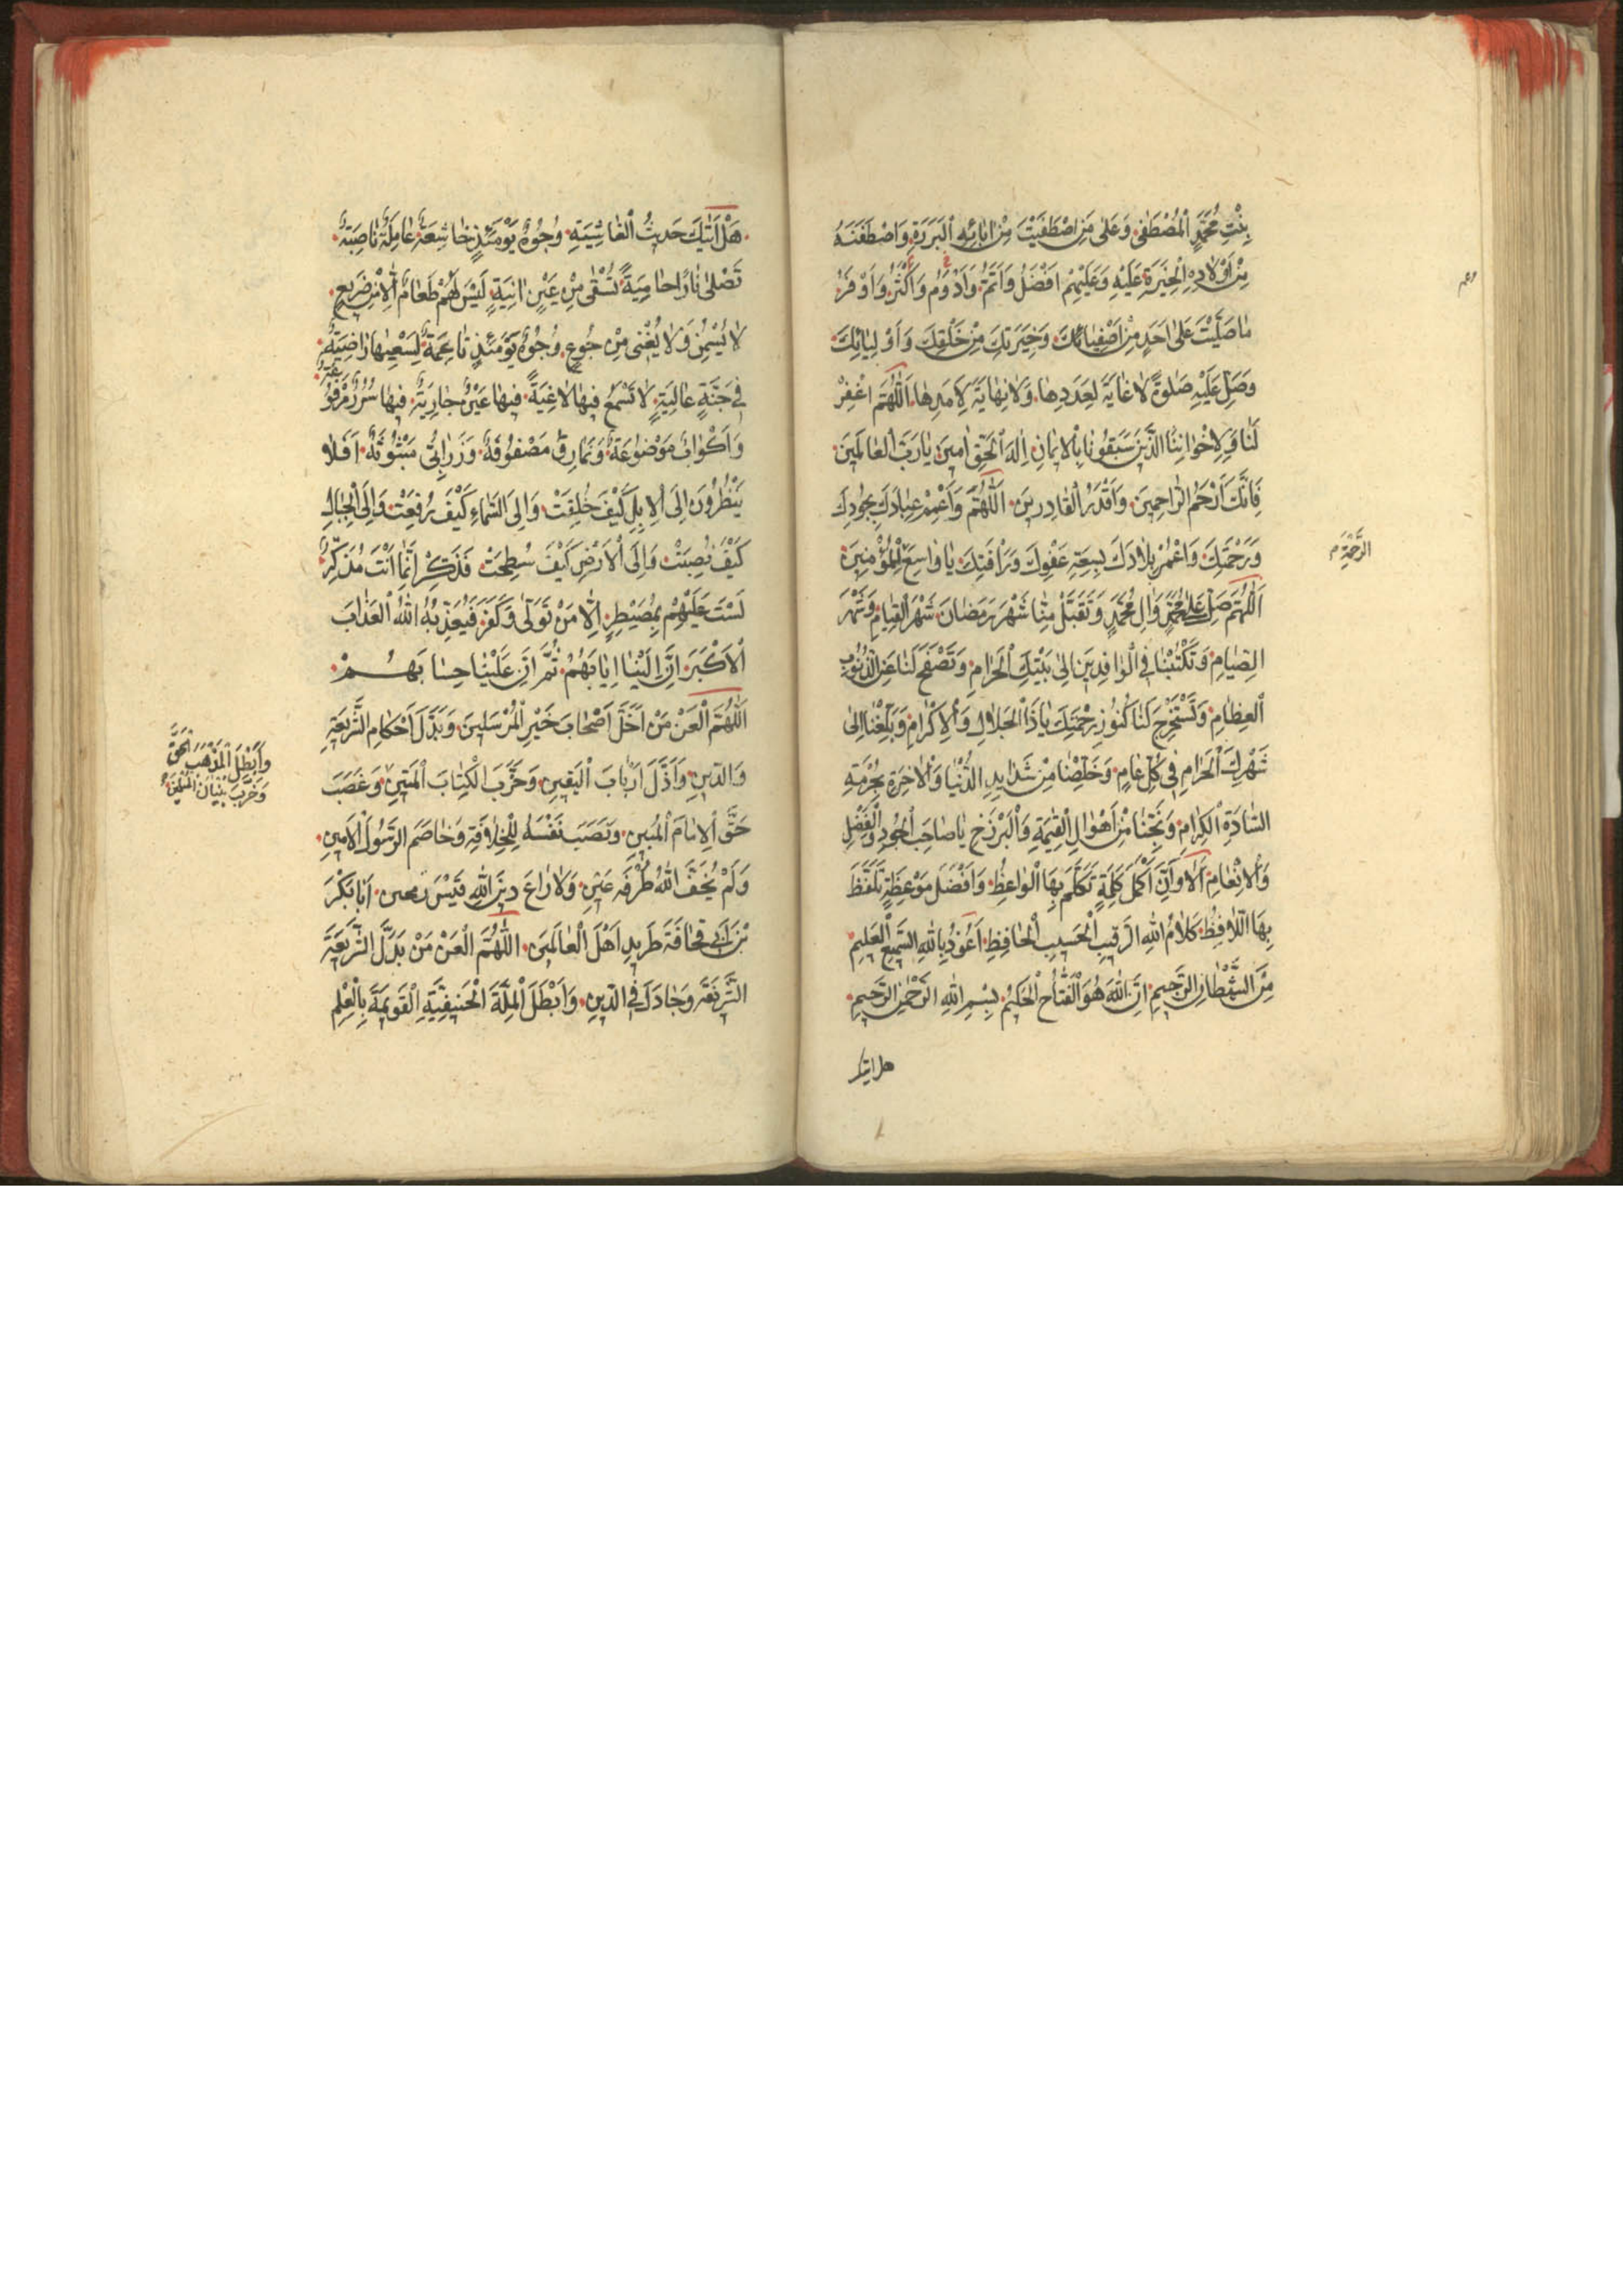 بِنْتِ مُحَمَّدٍ الْمُصْطَفٰى وَعَلٰى مَنِ اصْطَفَيْتَ مِنْ اٰبٰائِهِ الْبَرَرَةِ وَاصْطَفَتَهُ
مِنْ اَوْلٰادِهِ الْخِيَرَةِ عَلَيْهِ وَعَلَيْهِمْ اَفْضَلُ وَاَتَمُّ وَاَدْوَمُ وَاَكْثَرُ وَاَوْفَرُ
مٰا صَلَّيْتَ عَلٰى اَحَدٍ مِنْ اَصْفِيٰائِكَ وَخِيَرَتِكَ مِنْ خَلْقِكَ وَاَوْلِيٰائِكَ
وَصَلِّ عَلَيْهِ صَلٰوةً لٰا غٰايَةَ لِعَدَدِهٰا وَلٰا نِهٰايَةَ لِاَمَدِهٰا اَللّٰهُمَّ اغْفِرْ
لَنٰا وَلِاِخْوٰانِنَا الَّذِينَ سَبَقُونٰا بِالْاِيمٰانِ اِلٰهَ الْحَقِّ اٰمِينَ يٰا رَبَّ الْعٰالَمِينَ
فَاِنَّكَ اَرْحَمُ الرّٰاحِمِينَ وَاَقْدَرُ الْقٰادِرِينَ اَللّٰهُمَّ وَاَعْمِمْ عِبٰادَكَ بِجُودِكَ
وَرَحْمَتِكَ وَاعْمُرْ بِلٰادَكَ بِسِعَةِ عَفْوِكَ وَرَاْفَتِكَ يٰا وٰاسِعَ لِلْمُؤْمِنِينَ
الرَّحْمَةِ م
اَللّٰهُمَّ صَلِّ عَلٰى مُحَمَّدٍ وَاٰلِ مُحَمَّدٍ وَتَقَبَّلْ مِنّٰا شَهْرَ رَمَضٰانَ شَهْرَ الْقِيٰامِ وَشَهْرَ
الصِّيٰامِ وَتَكْتُبْنٰا فِي الْوٰافِدِينَ اِلٰى بَيْتِكَ الْحَرٰامِ وَتَصْفَحَ لَنٰا عَنِ الذُّنُوبِ
الْعِظٰامِ وَتَسْتَخْرِجَ لَنٰا كُنُوزَ رَحْمَتِكَ يٰا ذَا الْجَلٰالِ وَالْاِكْرٰامِ وَبَلِّغْنٰا اِلٰى
شَهْرِكَ الْحَرٰامِ فِي كُلِّ عٰامٍ وَخَلِّصْنٰا مِنْ شَدٰايِدِ الدُّنْيٰا وَالْاٰخِرَةِ بِحُرْمَةِ
السّٰادَةِ الْكِرٰامِ وَنَجِّنٰا مِنْ اَهْوٰالِ الْقِيٰمَةِ وَالْبَرْزَخِ يٰا صٰاحِبَ الْجُودِ وَالْفَضْلِ
وَالْاِنْعٰامِ اَلٰا وَاِنَّ اَكْمَلَ كَلِمَةٍ تَكَلَّمَ بِهَا الْوٰاعِظُ وَاَفْضَلَ مَوْعِظَةٍ تَلَفَّظَ
بِهَا اللّٰافِظُ كَلٰامُ اللّٰهِ الرَّقِيبِ الْحَسِيبِ الْحٰافِظِ اَعُوذُ بِاللّٰهِ السَّمِيعِ الْعَلِيمِ
مِنَ الشَّيْطٰانِ الرَّجِيمِ اِنَّ اللّٰهَ هُوَ الْفَتّٰاحُ الْحَكِيمُ بِسْمِ اللّٰهِ الرَّحْمٰنِ الرَّحِيمِ
هل اتيك
هَلْ اَتٰيكَ حَدِيثُ الْغٰاشِيَةِ وُجُوهٌ يَوْمَئِذٍ خٰاشِعَةٌ عٰامِلَةٌ نٰاصِبَةٌ
تَصْلٰى نٰارًا حٰامِيَةً تُسْقٰى مِنْ عَيْنٍ اٰنِيَةٍ لَيْسَ لَهُمْ طَعٰامٌ اِلّٰا مِنْ ضَرِيعٍ
لٰا يُسْمِنُ وَلٰا يُغْنِي مِنْ جُوعٍ وُجُوهٌ يَوْمَئِذٍ نٰاعِمَةٌ لِسَعْيِهٰا رٰاضِيَةٌ
فِي جَنَّةٍ عٰالِيَةٍ لٰا تَسْمَعُ فِيهٰا لٰاغِيَةً فِيهٰا عَيْنٌ جٰارِيَةٌ فِيهٰا سُرُرٌ مَرْفُوعَةٌ
وَاَكْوٰابٌ مَوْضُوعَةٌ وَنَمٰارِقُ مَصْفُوفَةٌ وَزَرٰابِيُّ مَبْثُوثَةٌ اَفَلٰا
يَنْظُرُونَ اِلَى الْاِبِلِ كَيْفَ خُلِقَتْ وَاِلَى السَّمٰاءِ كَيْفَ رُفِعَتْ وَاِلَى الْجِبٰالِ
كَيْفَ نُصِبَتْ وَاِلَى الْاَرْضِ كَيْفَ سُطِحَتْ فَذَكِّرْ اِنَّمٰا اَنْتَ مُذَكِّرٌ
لَسْتَ عَلَيْهِمْ بِمُصَيْطِرٍ اِلّٰا مَنْ تَوَلّٰى وَكَفَرَ فَيُعَذِّبُهُ اللّٰهُ الْعَذٰابَ
الْاَكْبَرَ اِنَّ اِلَيْنٰا اِيٰابَهُمْ ثُمَّ اِنَّ عَلَيْنٰا حِسٰابَهُمْ
اَللّٰهُمَّ الْعَنْ مَنْ اَخَلَّ اَصْحٰابَ خَيْرِ الْمُرْسَلِينَ وَبَدَّلَ اَحْكٰامَ الشَّرِيعَةِ
وَالدِّينِ وَاَذَلَّ اَرْبٰابَ الْيَقِينِ وَخَرَّبَ الْكِتٰابَ الْمَتِينَ وَغَصَبَ
وَاَبْطَلَ الْمَذْهَبَ الْحَقَّ
وَخَرَّبَ بُنْيٰانَ
حَقَّ الْاِمٰامِ الْمُبِينِ وَنَصَبَ نَفْسَهُ لِلْخِلٰافَةِ وَخٰاصَمَ الرَّسُولَ الْاَمِينِ
وَلَمْ يَخَفِ اللّٰهَ طَرْفَةَ عَيْنٍ وَلٰا رٰاعَ دِينَ اللّٰهِ اَبٰا بَكْرَ
بْنَ اَبِي قُحٰافَةَ طَرِيدِ اَهْلَ الْعٰالَمِينَ اَللّٰهُمَّ الْعَنْ مَنْ بَدَّلَ الشَّرِيعَةَ
الشَّرِيفَةَ وَجٰادَلَ فِي الدِّينِ وَاَبْطَلَ الْمِلَّةَ الْحَنِيفِيَّةِ الْقَوِيمَةَ بِالْعِلْمِ